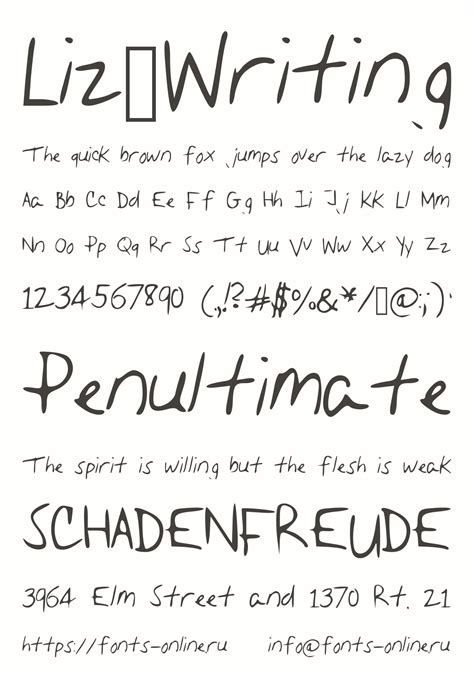 Liz▯Writing
The quick brown fox jumps over the lazy dog
Aa Bb Cc Dd Ee Ff Gg Hh Ii Jj Kk Ll Mm
Nn Oo Pp Qq Rr Ss Tt Uu Vv Ww Xx Yy Zz
1234567890 (.,!?#$%&*/▯@:;)'
Penultimate
The spirit is willing but the flesh is weak
SCHADENFREUDE
3964 Elm Street and 1370 Rt. 21
https://fonts-online.ru info@fonts-online.ru